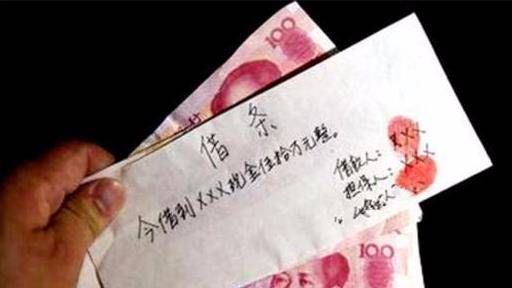 100
借条
今借到XXX现金伍拾万元整。
借款人：XXX
担保人：XXX
100